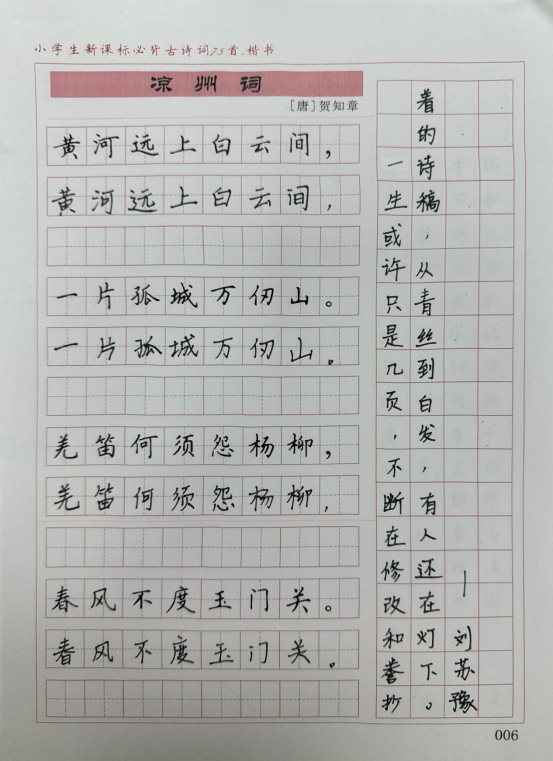 小学生新课标必背古诗词75首.楷书
凉州词
[唐]贺知章
黄河远上白云间，
黄河远上白云间，
一片孤城万仞山。
一片孤城万仞山。
羌笛何须怨杨柳，
羌笛何须怨杨柳，
春风不度玉门关。
春风不度玉门关。
一生或许只是几页，不断在修改和誊抄
着的诗稿，从青丝到白发，有人还在灯下。
—刘苏豫
006